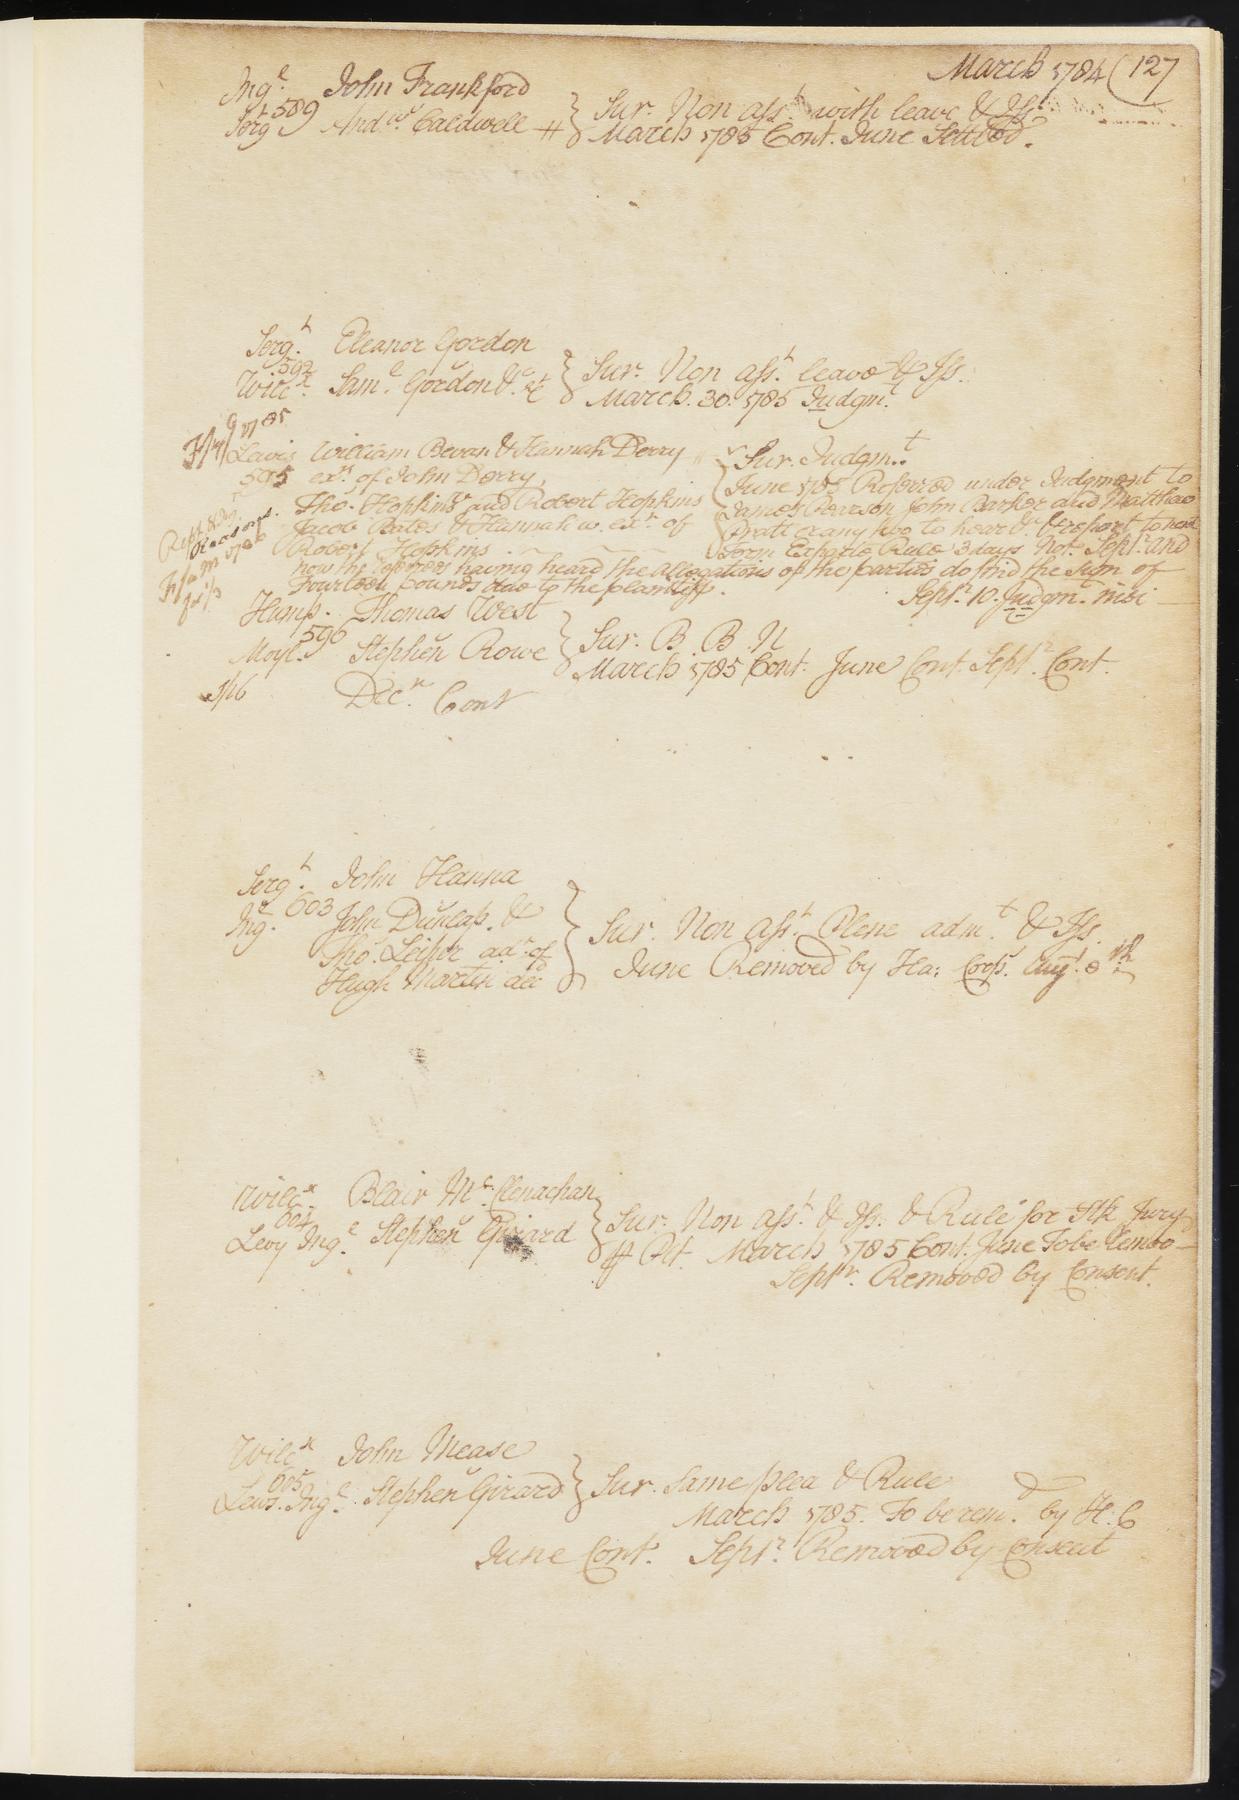 March 1784 (127
Ing.e John Frankford
589
Serg.t And.w Caldwell # } Sur. Non ass.t with leave & Iss.
March 1785 Cont. June Settled.
Serg.t Eleanor Gordon
592
Wilc.x Sam.l Gordon &c. } Sur. Non ass.t leave & Iss.
March. 30. 1785 Judgm.t
Lewis William Bevan & Hannah Derry } Sur. Judgm.t
595 ex.rs of John Derry, June 1785 Referred under Judgment to
Tho.s Hopkins and Robert Hopkins James Pearson John Parker and Matthew
Jacob Bates & Hannah w. ex.rs of Pratt or any two to hear &c. & report to next
Robert Hopkins Term Exparte Rule 3 days Not. Sept.r and
now the referees having heard the allegations of the parties do find the Sum of
Fourteen pounds due to the plantiff. Sept.r 10. Judgm.t nisi
Hump. Thomas West
596
Moyl. Stephen Rowe } Sur. B. B. N
March 1785 Cont. June Cont. Sept.r Cont.
1/6 Dec.r Cont
Serg.t John Hanna
603
Ing.e John Dunlap. &
Tho.s Leiper ad.rs of } Sur. Non ass.t Plene adm.t & Iss.
Hugh Martin dec.d June Removed by Ha: Corp.s Aug.t 8
Wilc.x Blair M.c Clenachan
604
Levy Ing.e Stephen Girard } Sur. Non ass.t & Iss. & Rule for Stk Jury
Plt. March 1785 Cont. June To be Remoo
Sept.r Removed by Consent.
Wilc.x John Mease
605
Lewis. Ing.e Stephen Girard } Sur. Same plea & Rule
March 1785. To be rem.d by H. C
June Cont. Sept.r Removed by Consent